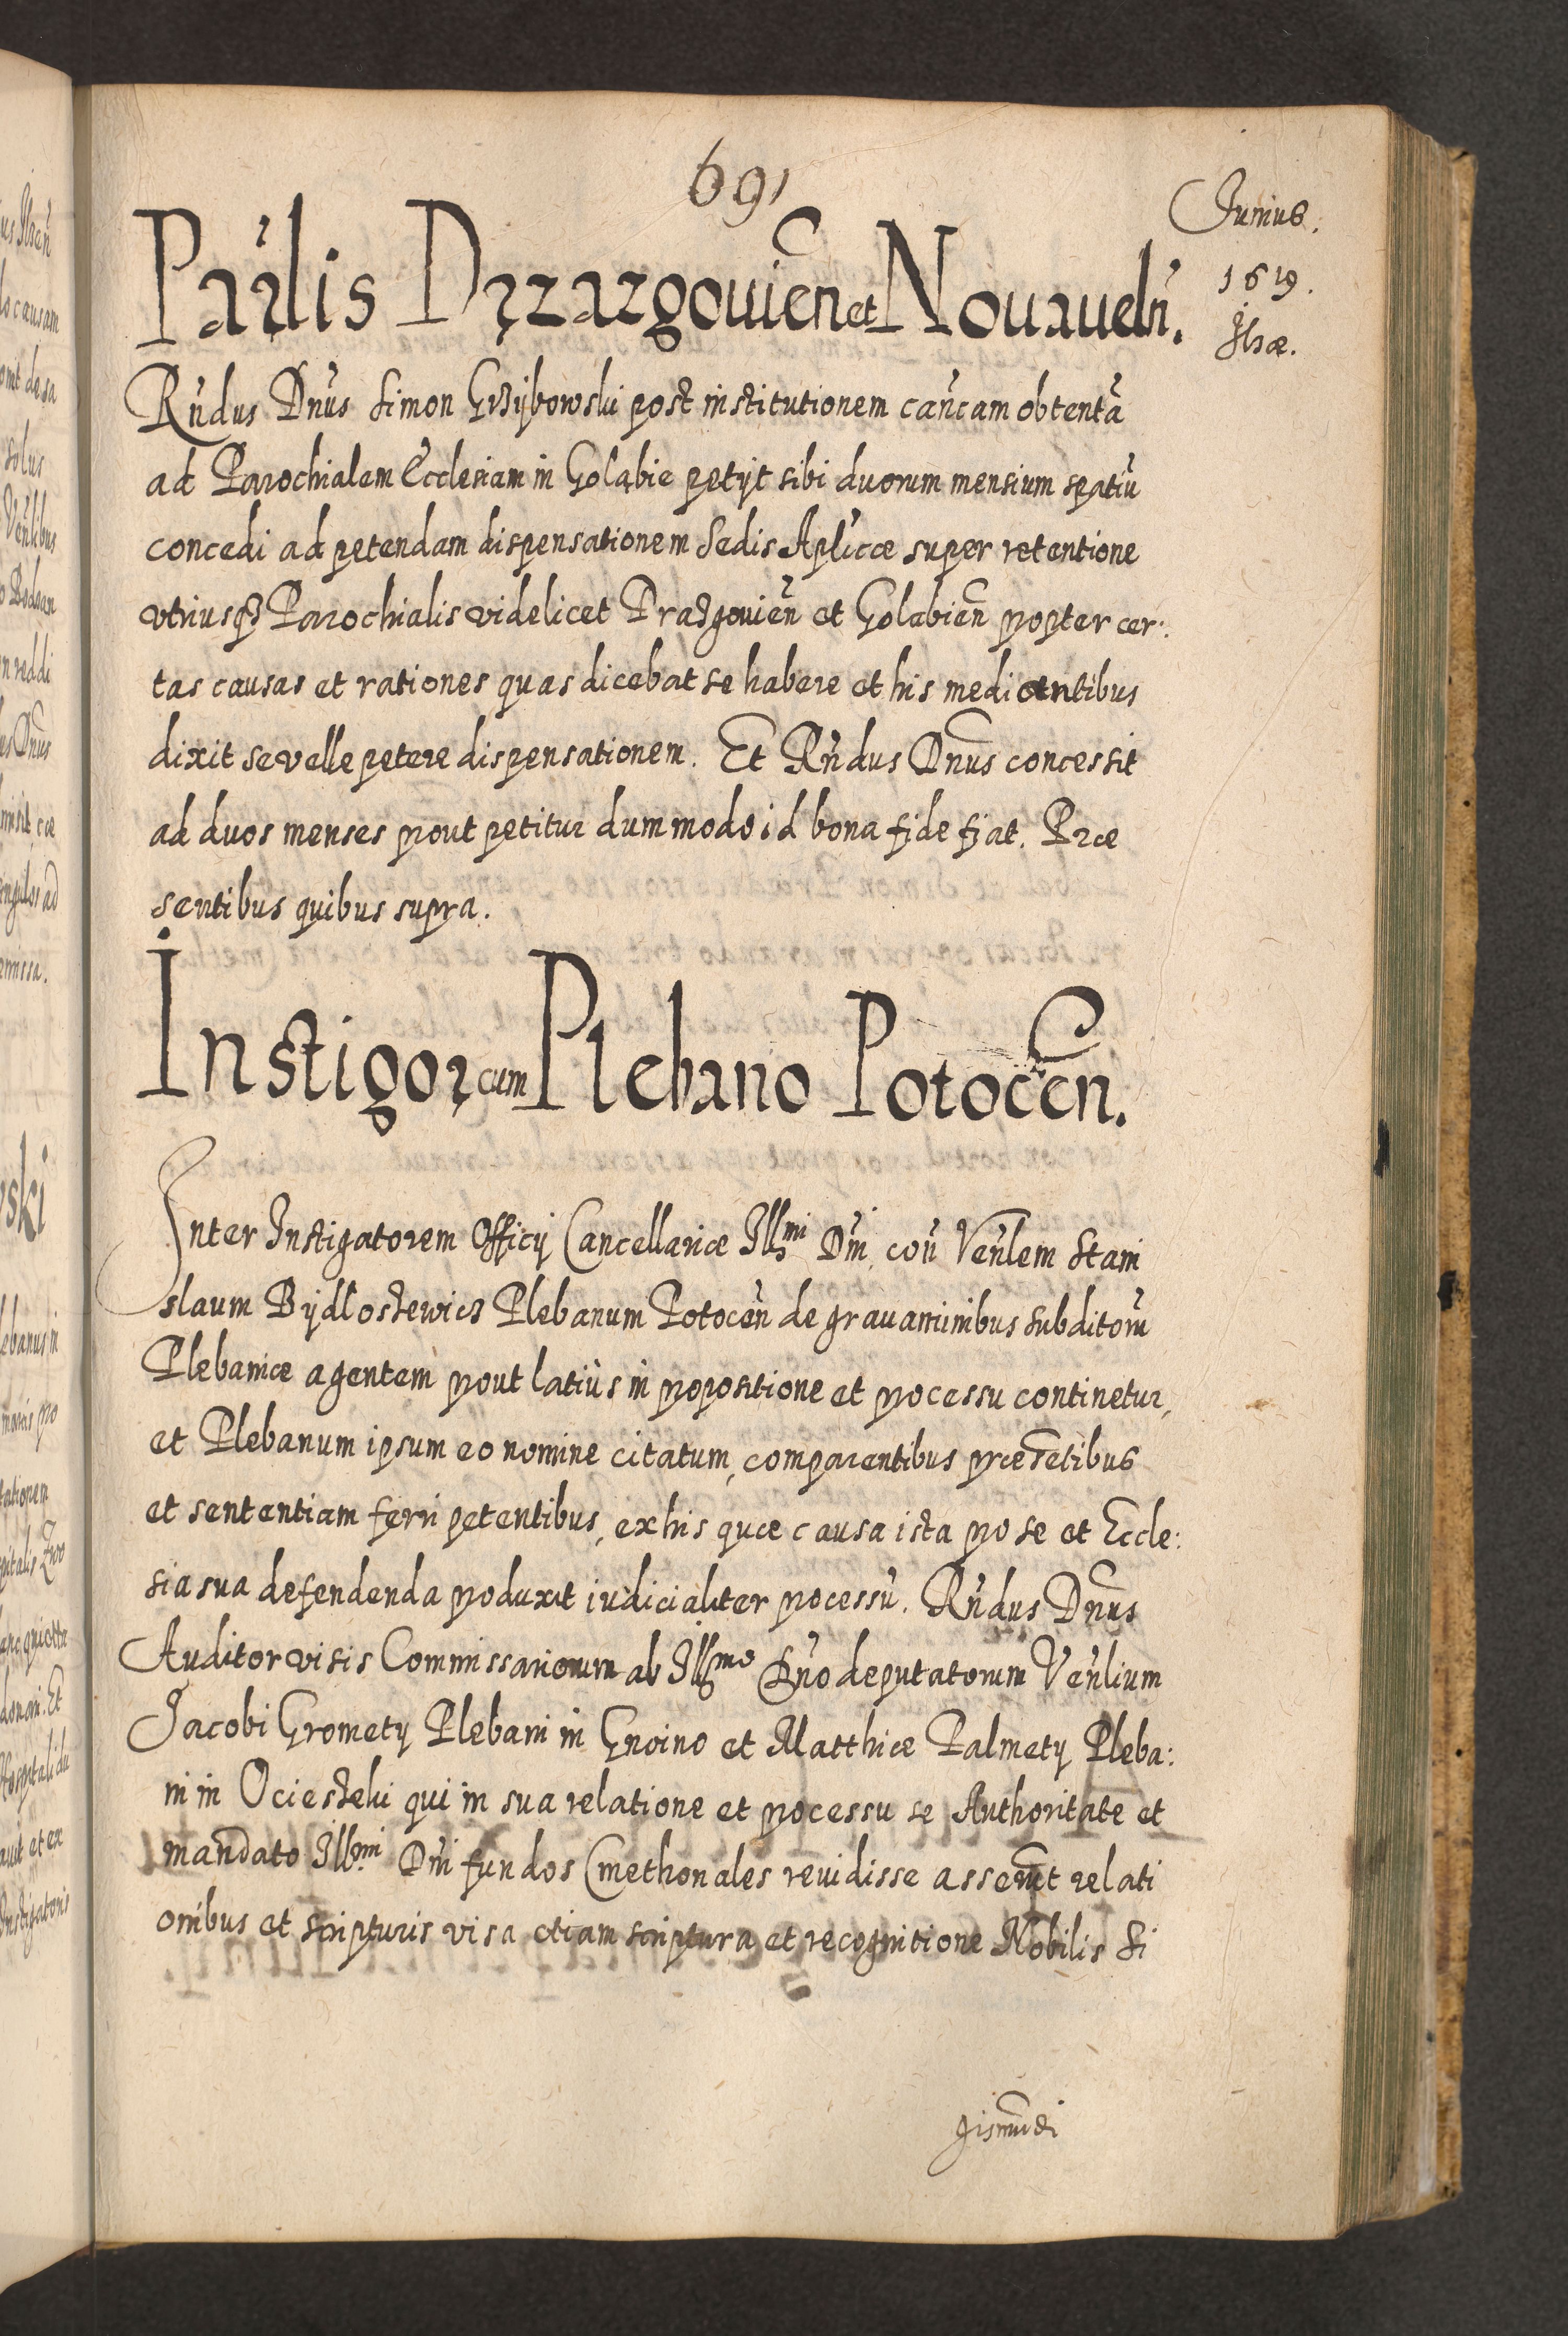 691
Junius.
1619.
Jlzæ.
Pa͂rlis Drzazgouien͂ et Nouaueln͂.
Rn͂dus Dn͂us Simon Grzÿbowski post institutionem can͂cam obtentã
ad Parochialem Ecclesiam in Goląbie petÿt sibi duorum mensium spatiũ
concedi ad petendam dispensationem Sedis Apl͂icæ super retentione
vtriusqȝ Parochialis videlicet Drazgouien͂ et Golabien͂ propter cer:
tas causas et rationes quas dicebat se habere et his mediantibus
dixit se velle petere dispensationem. Et Rn͂dus Dn͂us concessit
ad duos menses prout petitur dummodo id bona fide fiat. Præ
sentibus quibus supra.
Instigor cum Plebano Potocen͂.
Inter Instigatorem Officÿ Cancellariæ Illmi Dn͂i, coñ Ven͂lem Stani
slaum Bÿdlostewicz Plebanum Potocen͂ de grauaminibus subditorũ
Plebaniæ agentem prout latiùs in propositione et processu continetur,
et Plebanum ipsum eo nomine citatum, comparentibus præsẽtibus
et sententiam ferri petentibus, ex his quæ causa ista pro se et Eccle:
sia sua defendenda produxit iudicialiter processũ. Rn͂dus Dn͂us
Auditor visis Commissariorum ab Illmo Dn͂o deputatorum Ven͂lium
Jacobi Gromety Plebani in Gnoino et Matthiæ Palmety Pleba:
ni in Ociesteki qui in sua relatione et processu se Authoritate et
mandato Illmi Dn͂i fundos Cmethonales reuidisse asserũt relati
onibus et scripturis visa etiam scriptura et recognitione Nobilis Si
gismũdi